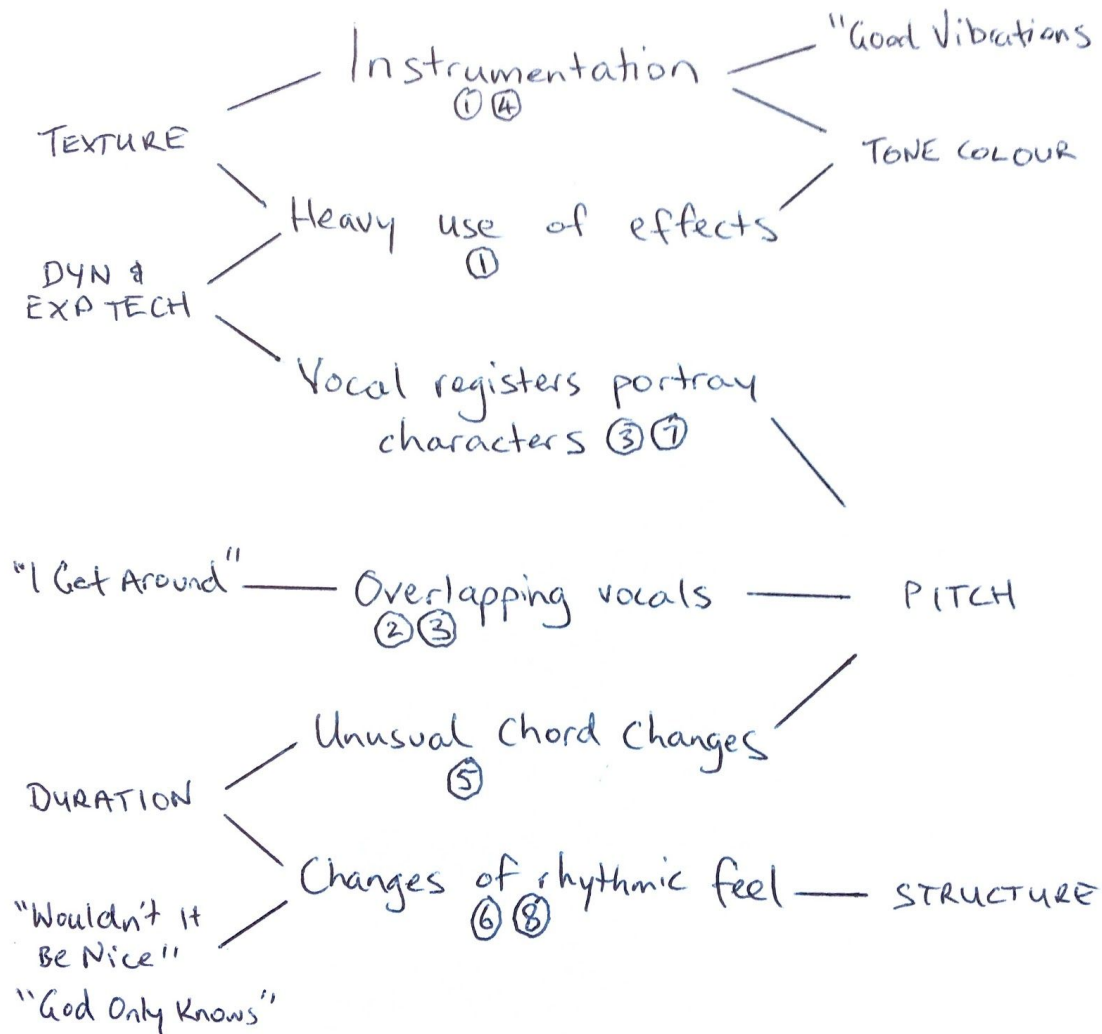 "Good Vibrations
Instrumentation
① ④
TEXTURE
TONE COLOUR
Heavy use of effects
①
DYN &
EXP TECH
Vocal registers portray
characters ③ ⑦
"I Get Around"
Overlapping vocals
② ③
PITCH
Unusual Chord Changes
⑤
DURATION
Changes of rhythmic feel
⑥ ⑧
STRUCTURE
"Wouldn't It
Be Nice"
"God Only Knows"